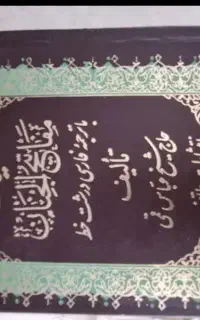 مفاتیح الجنان
با ترجمه فارسی درشت خط
تألیف
حاج شیخ عباس قمی